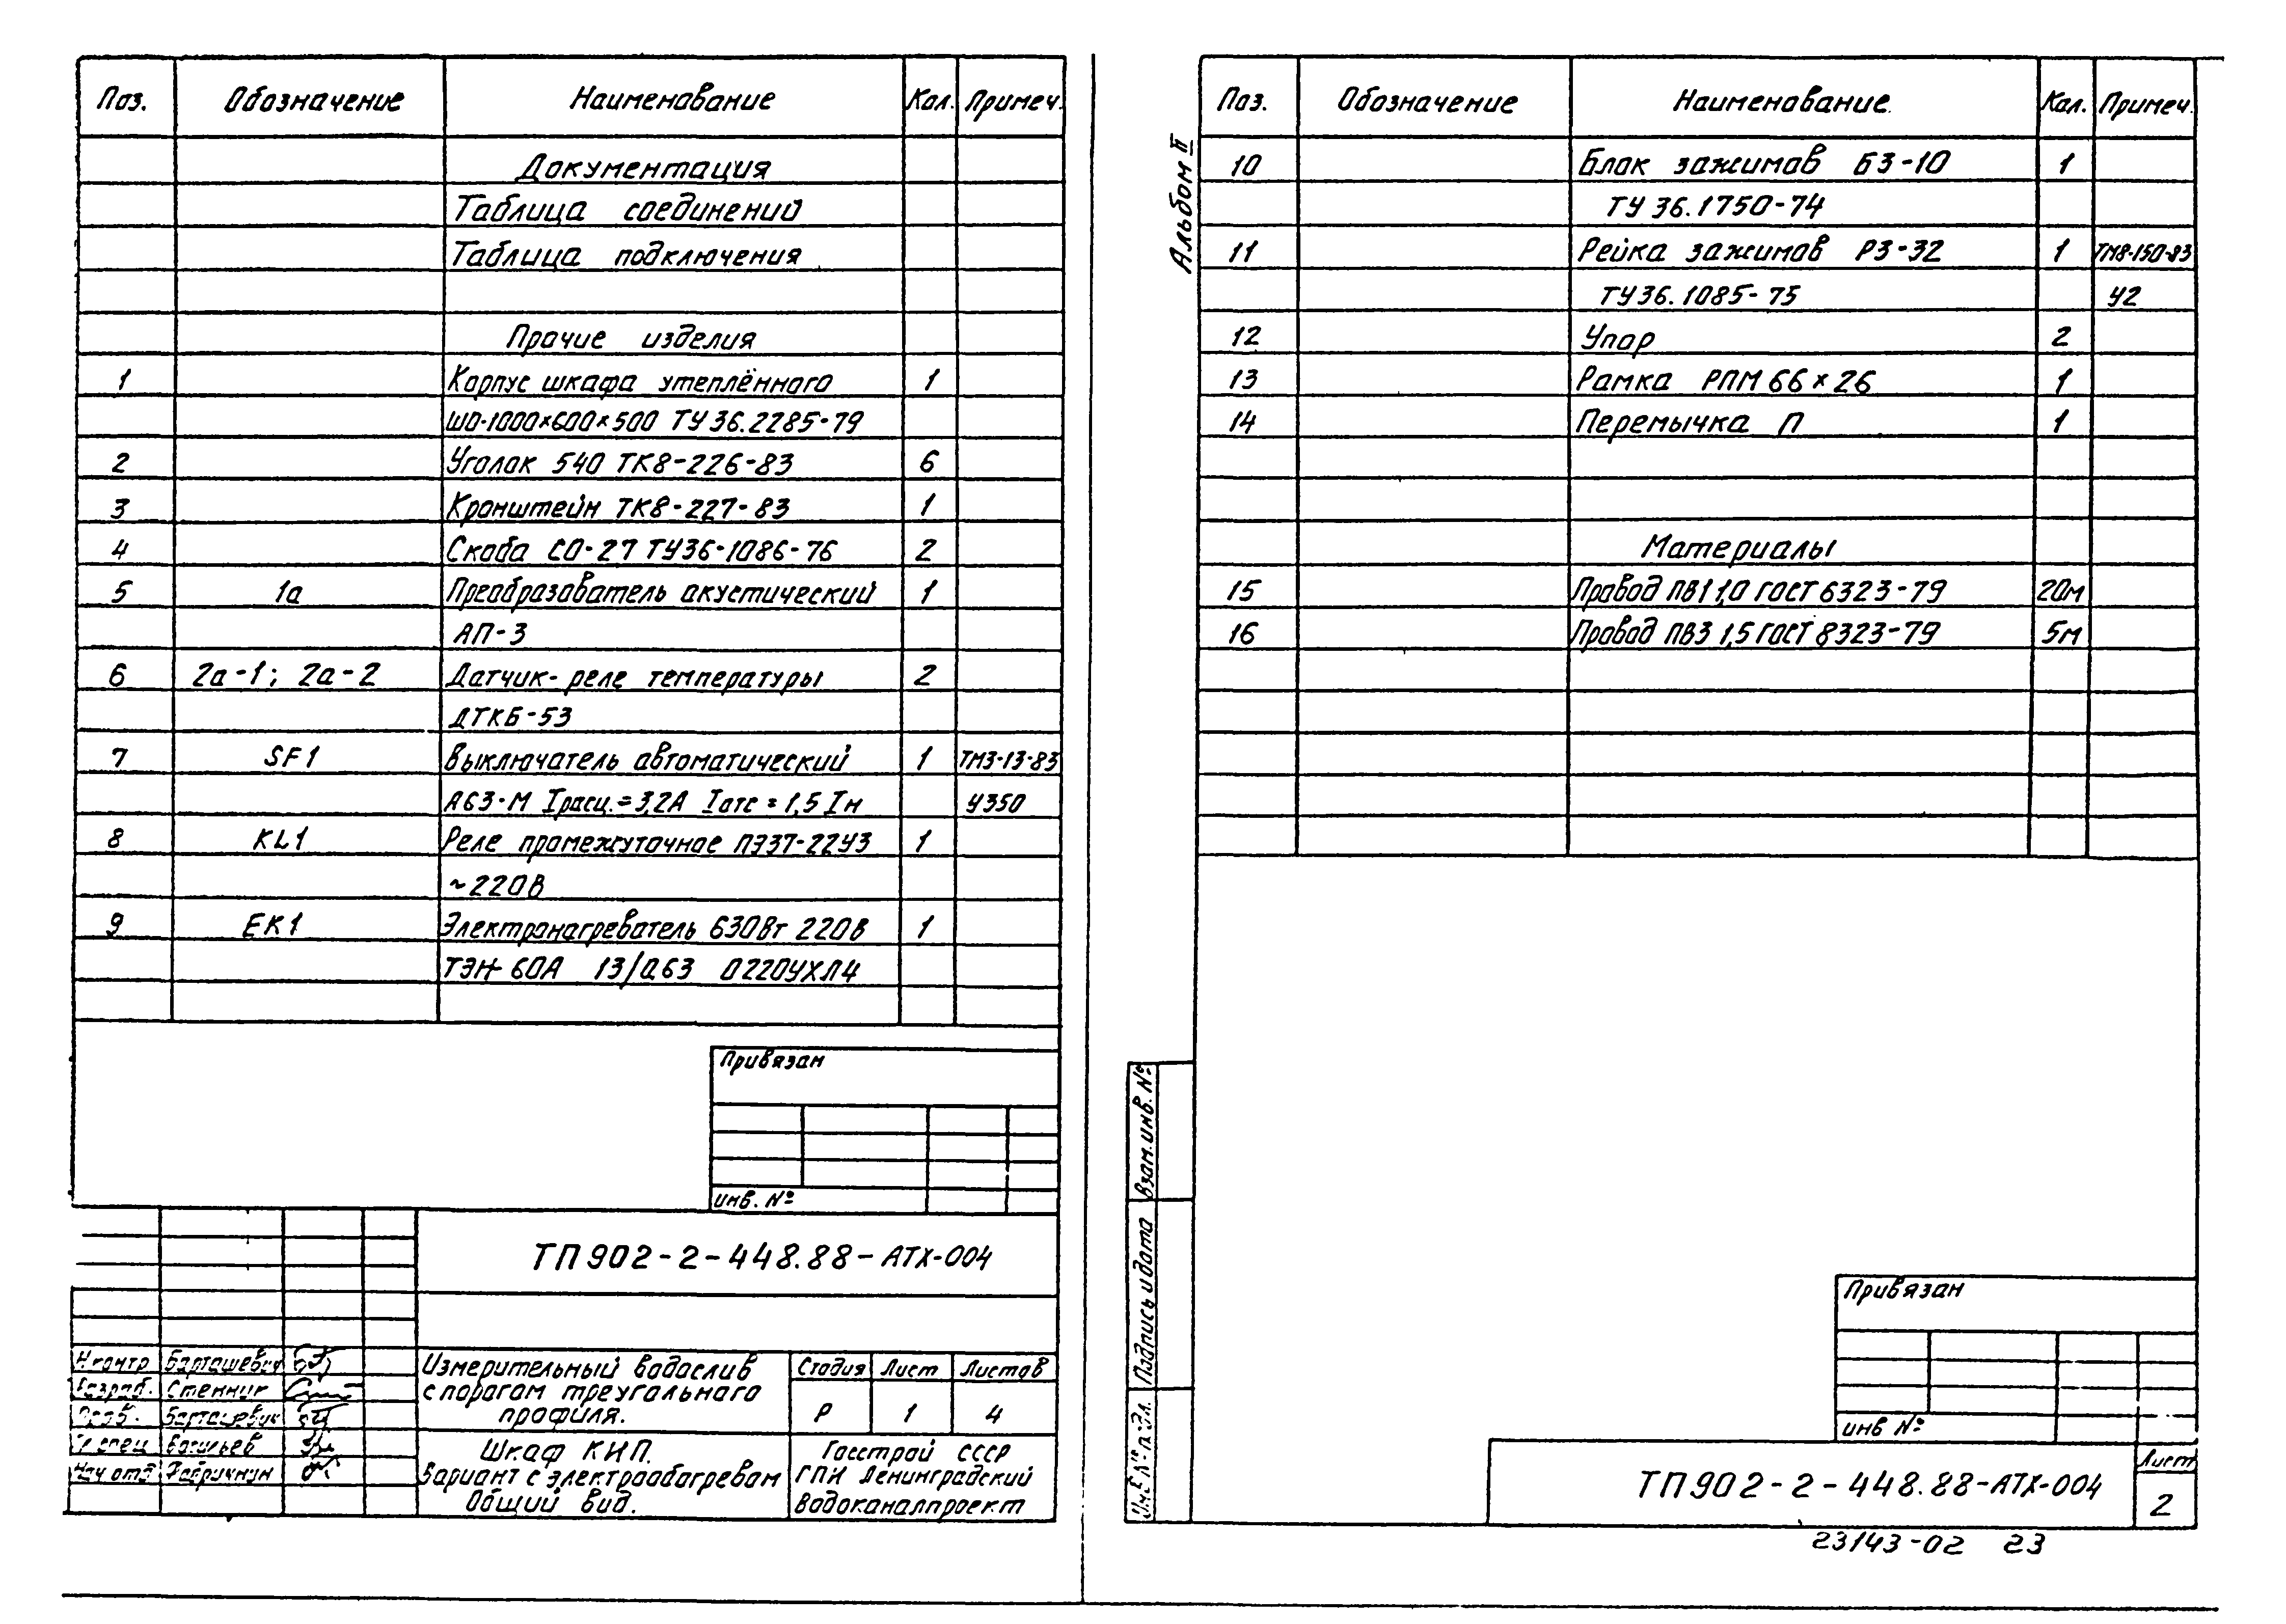 Поз. Обозначение Наименование Кол. Примеч.
Документация
Таблица соединений
Таблица подключения
Прочие изделия
1 Корпус шкафа утеплённого 1
ШО-1000×600×500 ТУ 36.2285-79
2 Уголок 540 ТК8-226-83 6
3 Кронштейн ТК8-227-83 1
4 Скоба СО-27 ТУ36-1086-76 2
5 1а Преобразователь акустический 1
АП-3
6 2а-1; 2а-2 Датчик-реле температуры 2
ДТКБ-53
7 SF1 Выключатель автоматический 1 ТМ3-13-83
А63-М Iрасц.=3,2А Iотс=1,5Iн У350
8 KL1 Реле промежуточное ПЭ37-22У3 1
~220В
9 EK1 Электронагреватель 630Вт 220В 1
ТЭН-60А 13/0,63 О220УХЛ4
Привязан
инв. №
ТП 902-2-448.88-АТХ-004
Н.контр Барташевич
Разраб. Стенник
Пров. Барташевич
Гл.спец Васильев
Нач отд
Измерительный водослив
с порогом треугольного
профиля.
Стадия Лист Листов
Р 1 4
Шкаф КИП.
Вариант с электрообогревом
Общий вид.
Госстрой СССР
ГПИ Ленинградский
Водоканалпроект
Альбом II
Поз. Обозначение Наименование. Кол. Примеч.
10 Блок зажимов БЗ-10 1
ТУ 36.1750-74
11 Рейка зажимов РЗ-32 1 ТМ8-150-83
ТУ36.1085-75 У2
12 Упор 2
13 Рамка РПМ 66×26 1
14 Перемычка П 1
Материалы
15 Провод ПВ1 1,0 ГОСТ 6323-79 20м
16 Провод ПВ3 1,5 ГОСТ 8323-79 5м
Взам.инв. №
Подпись и дата
Инв № подл.
Привязан
инв №
ТП 902-2-448.88-АТХ-004
Лист
2
23143-02 23